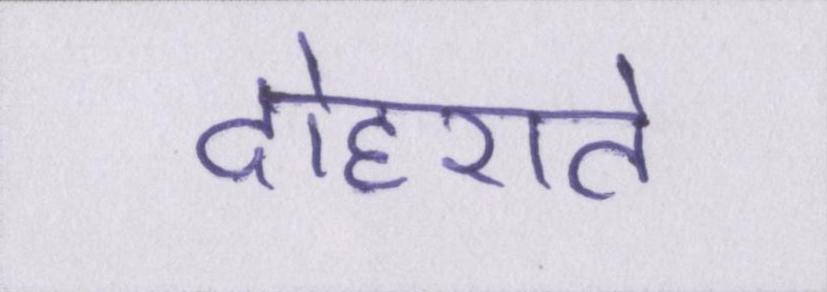 दोहराते